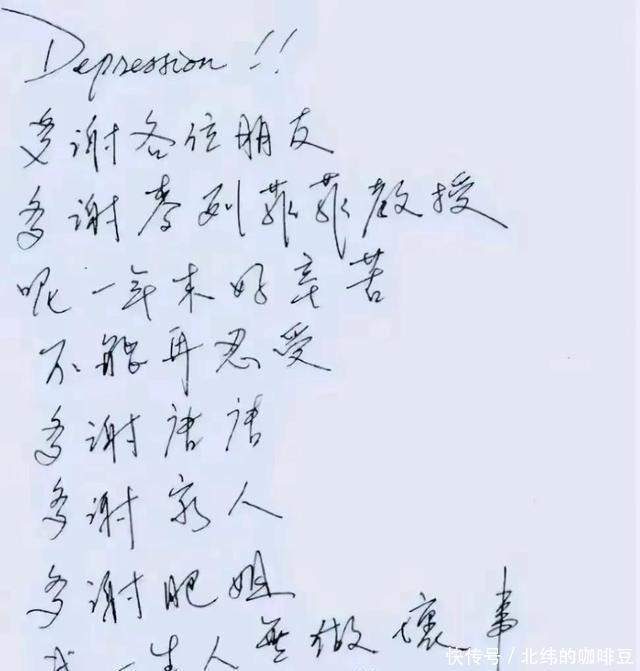 Depression!!
多谢各位朋友
多谢麥列菲菲教授
呢一年来好辛苦
不能再忍受
多谢唐唐
多谢家人
多谢肥姐
我一生人無做壞事
快传号／北纬的咖啡豆